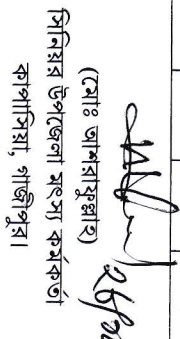 26/
(মোঃ আশরাফুল্লাহ)
সিনিয়র উপজেলা মৎস্য কর্মকর্তা
কাপাসিয়া, গাজীপুর।